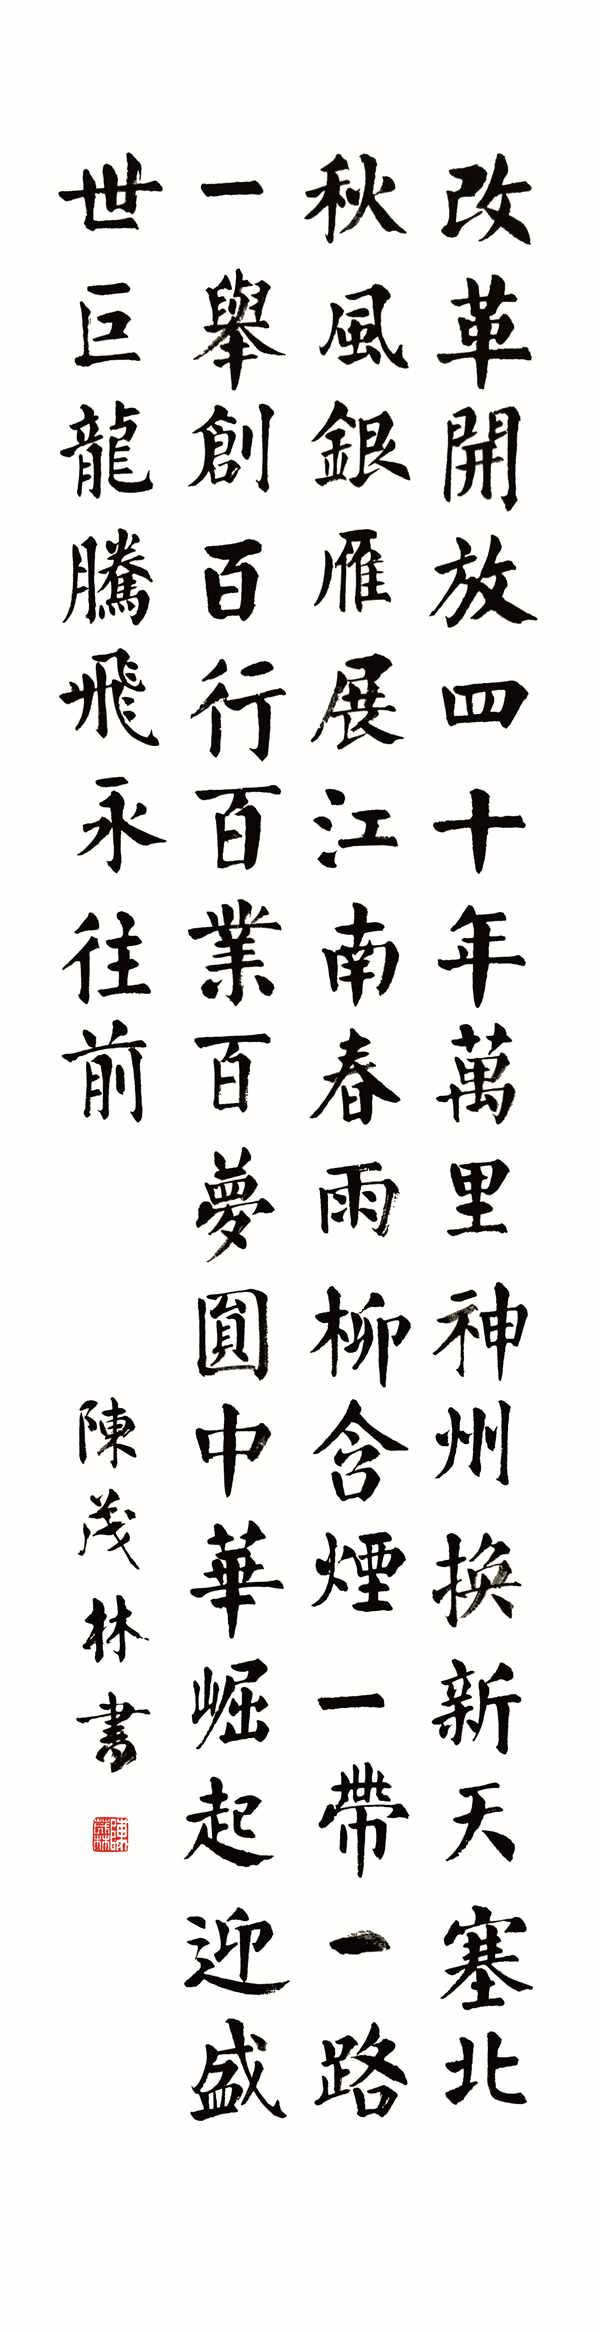 改革開放四十年萬里神州換新天塞北
秋風銀雁展江南春雨柳含煙一帶一路
一舉創百行百業百夢圓中華崛起迎盛
世巨龍騰飛永往前
陳茂林書
陳茂林